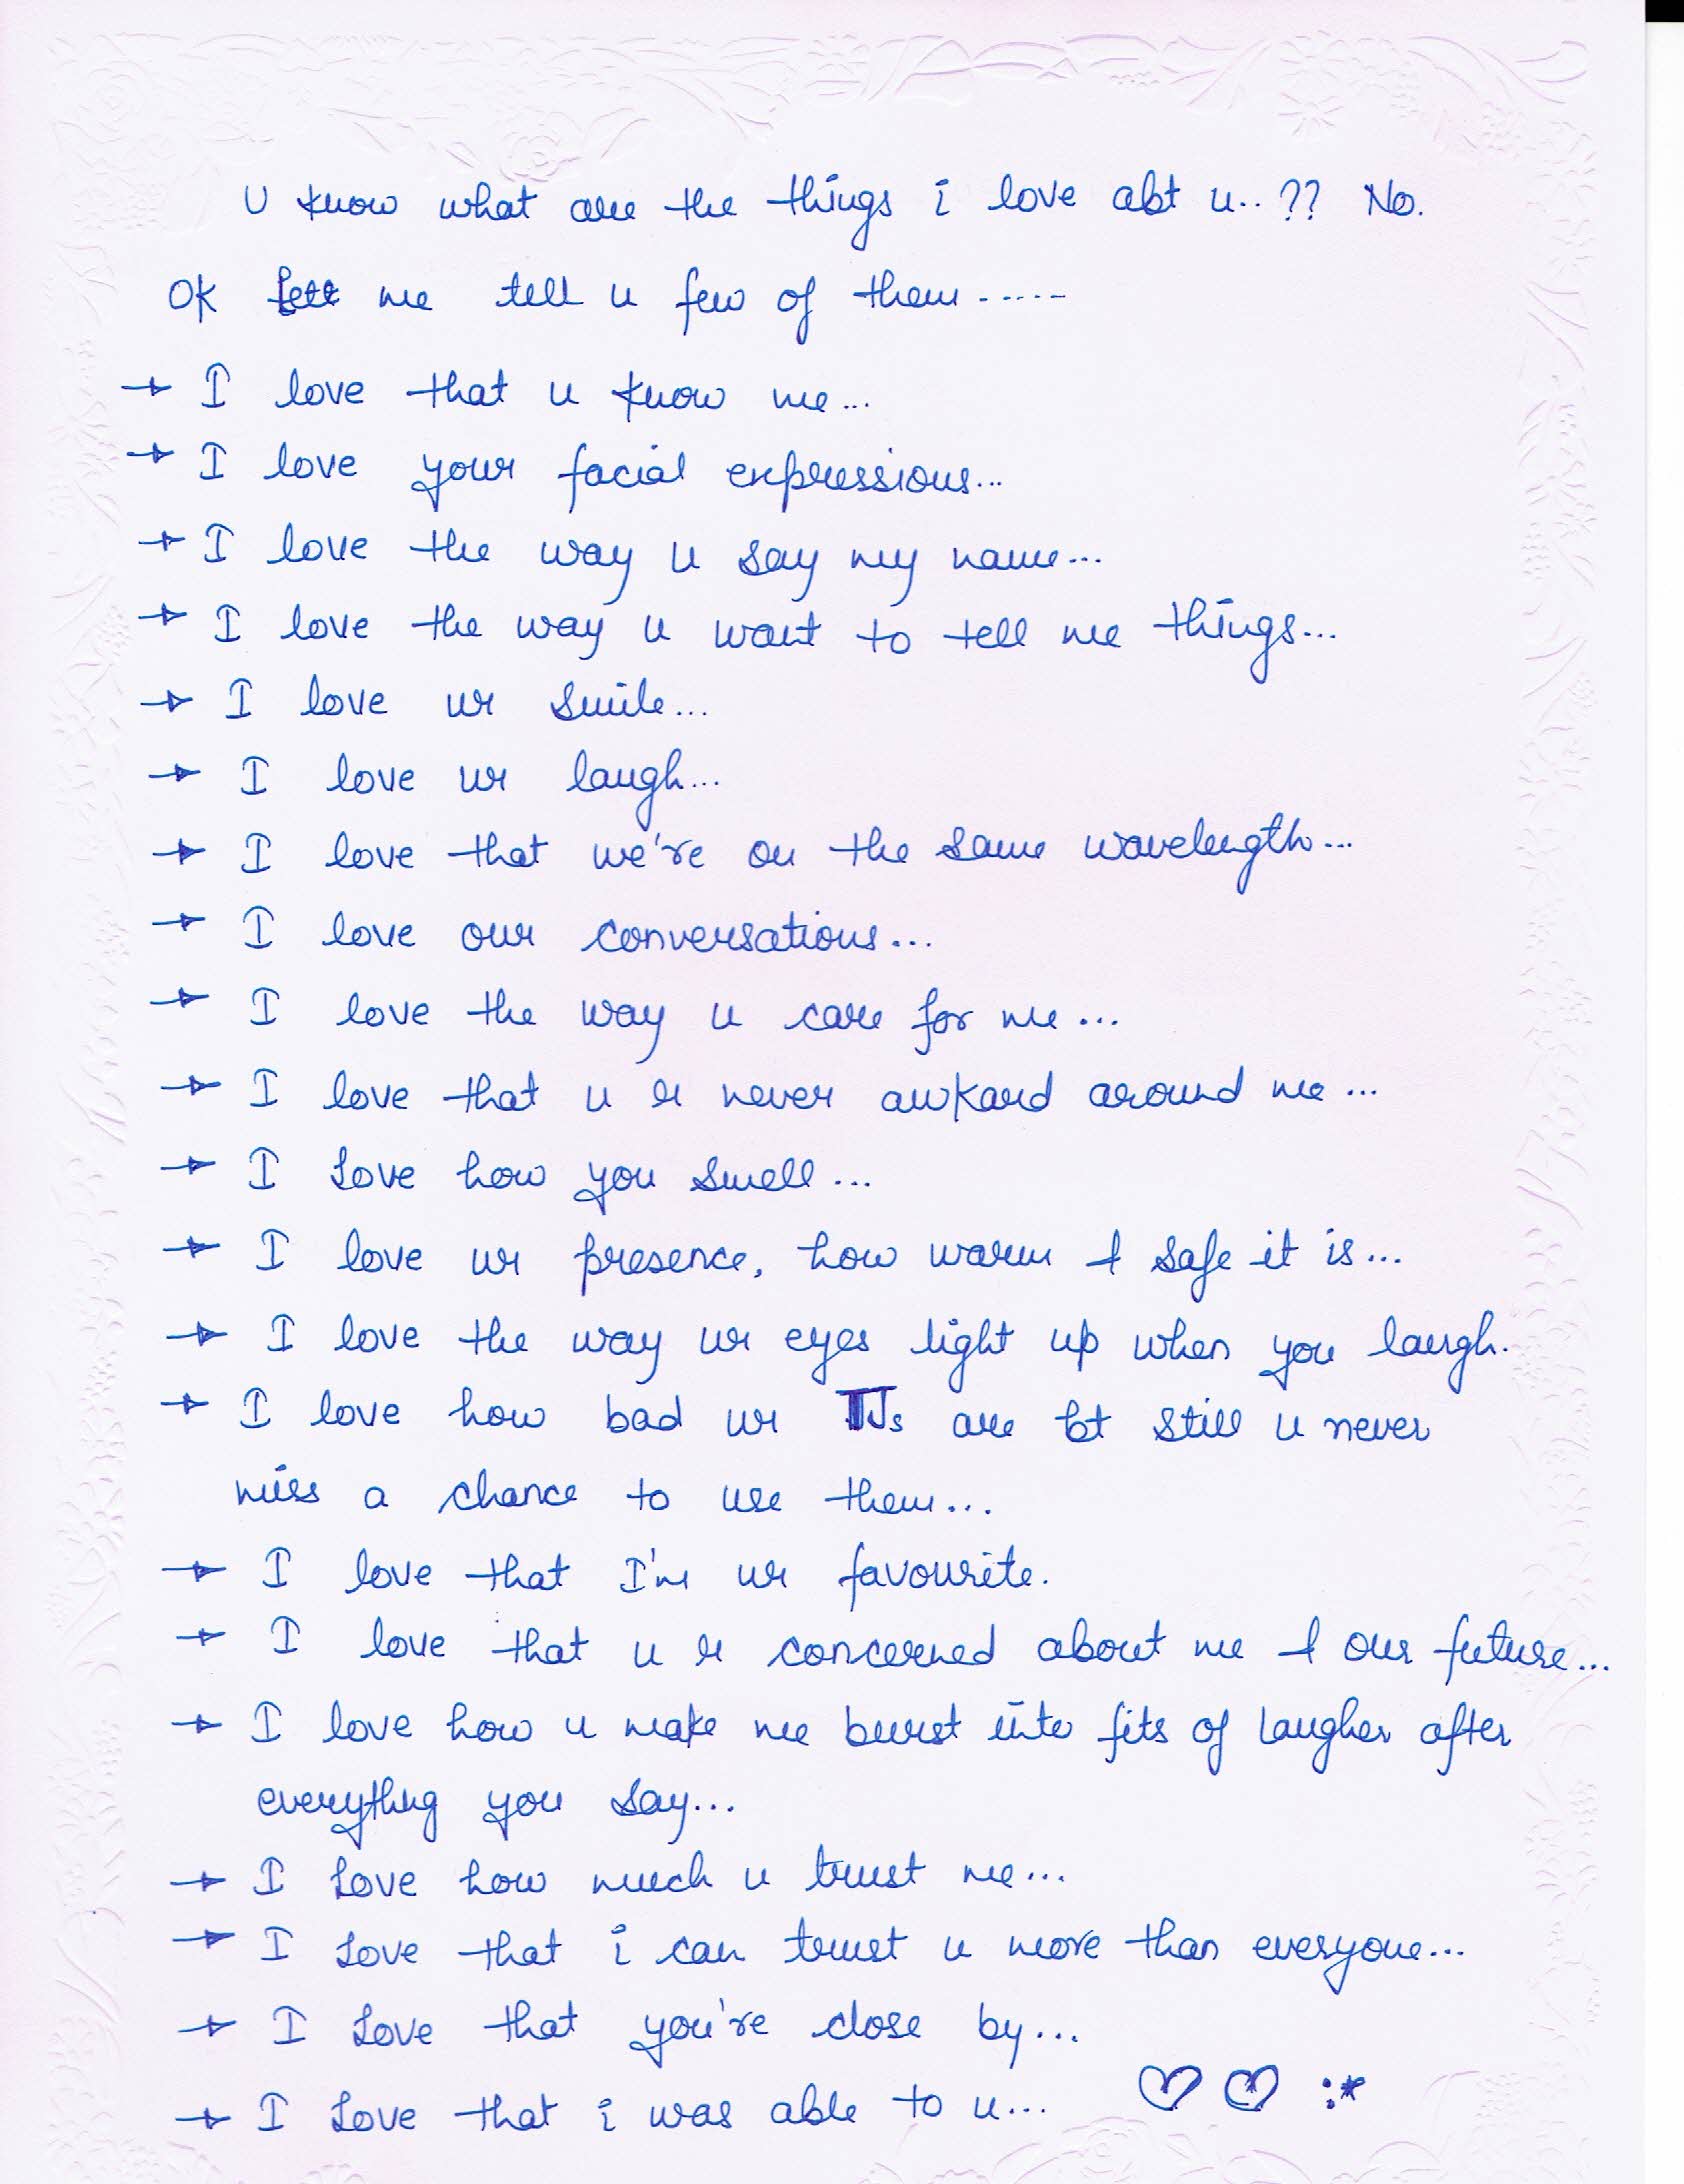 U know what are the things i love abt u..?? No.
OK let me tell u few of them.....
→ I love that u know me...
→ I love your facial expressions...
→ I love the way u say my name...
→ I love the way u want to tell me things...
→ I love ur smile...
→ I love ur laugh...
→ I love that we're on the same wavelength...
→ I love our conversations...
→ I love the way u care for me...
→ I love that u r never awkard around me...
→ I love how you smell...
→ I love ur presence, how warm & safe it is...
→ I love the way ur eyes light up when you laugh.
→ I love how bad ur TJs are bt still u never
miss a chance to use them...
→ I love that I'm ur favourite.
→ I love that u r concerned about me & our future...
→ I love how u make me burst into fits of laugher after
everything you say...
→ I love how much u trust me...
→ I love that i can trust u more than everyone...
→ I love that you're close by...
→ I love that i was able to u... ♡ ♡ :*